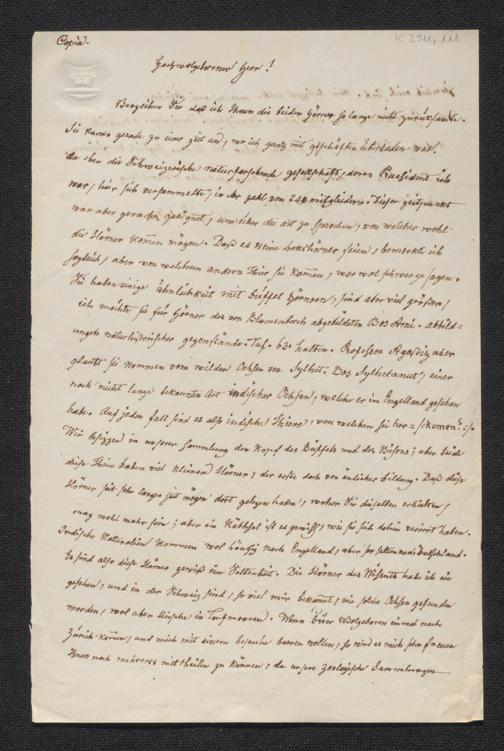 Copia.
Hochwolgeborner Herr!
Verzeihen Sie daß ich Ihnen die beiden Hörner so lange nicht zurüksandte.
Sie kamen gerade zu einer zeit an, wo ich ganz mit geschäften überladen war,
da eben die Schweizerische naturforschende gesellschaft, deren Praesident ich
war, hier sich versammelte, in der zahl von 240 mitgliedern. Dieser zeitpunkt
war aber gerade geeignet, um über die art zu sprechen, von welcher wohl
die Hörner kommen mögen. Daß es keine Bokshörner seien, bemerkte ich
sogleich, aber von welchem andern Thier sie kommen, war wol schwer zu sagen.
Sie haben einige ähnlichkeit mit Büffel Hörnern, sind aber viel größer,
ich möchte sie für Hörner des von Blumenbach abgebildeten Bos Arni. abbild=
ungen naturhistorischer gegenstände. Taf. 63. halten. Professor Agassiz aber
glaubt sie kommen vom wilden Ochsen von Sylhet. Bos Sylhetanus, einer
noch nicht lange bekannten Art indischer Ochsen, welche er in Engelland gesehen
habe. Auf jeden fall sind es also indische Thiere, von welchen sie her=
Wir besizzen in unserer Sammlung den Kopf des Büffels und des Bisons; aber beide
diese Thiere haben viel kleinere Hörner, der erste doch von änlicher bildung. Daß diese
Hörner seit sehr langer zeit mögen dort gelegen haben, woher Sie dieselben erhielten,
mag wohl wahr sein; aber ein Räthsel ist es gewiß, wie sie sich dahin verirrt haben.
Indische Naturalien kommen wol häufig nach Engelland, aber so selten nach Deutschland.
Es sind also diese Hörner gewiß eine Seltenheit. Die Hörner des Wisents habe ich nie
gesehen, und in der Schweiz sind, so viel mir bekannt, nie solche Ochsen gefunden
worden, wol aber in Torfmooren. Wenn Euer Wolgeboren einmal nach
Zürich kommen, und mich mit einem besuche beeren wollen, so wird es mich sehr freuen
Ihnen noch mehrers mittheilen zu können, da unsere zoologische Sammlungen